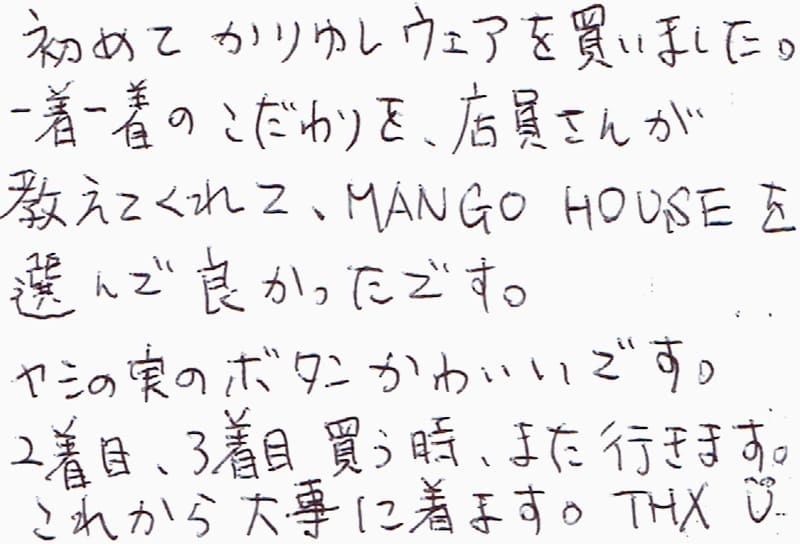 初めてかりゆしウェアを買いました。
一着一着のこだわりを、店員さんが
教えてくれて、MANGO HOUSEを
選んで良かったです。
ヤシの実のボタンかわいいです。
2着目、3着目買う時、また行きます。
これから大事に着ます。THX